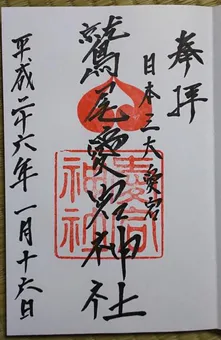 奉拝
日本三大愛宕
鷲尾愛宕神社
愛宕神社
平成二十六年一月十六日